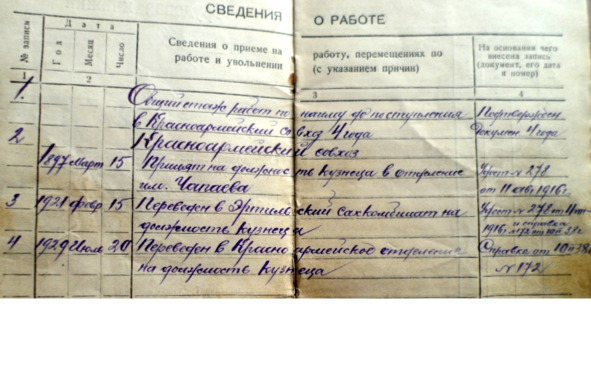 СВЕДЕНИЯ О РАБОТЕ
№ записи
Дата
Год
Месяц
Число
Сведения о приеме на работу, перемещениях по
работе и увольнении (с указанием причин)
На основании чего
внесена запись
(документ, его дата
и номер)
1 2 3 4
1. Общий стаж работ по найму до поступления Подтвержден
в Красноармейский совхоз 4 года докумен. 4 года
2 Красноармейский совхоз
1897 Март 15 Принят на должность кузнеца в отделение № 278
им. Чапаева 1916г.
3 1921 февр 15 Переведен в Эртильский сахкомбинат на № 278 от
должность кузнеца 1916г. и справка
4 1929 Июль 20 Переведен в Красноармейское отделение Справка от
на должность Кузнеца № 172